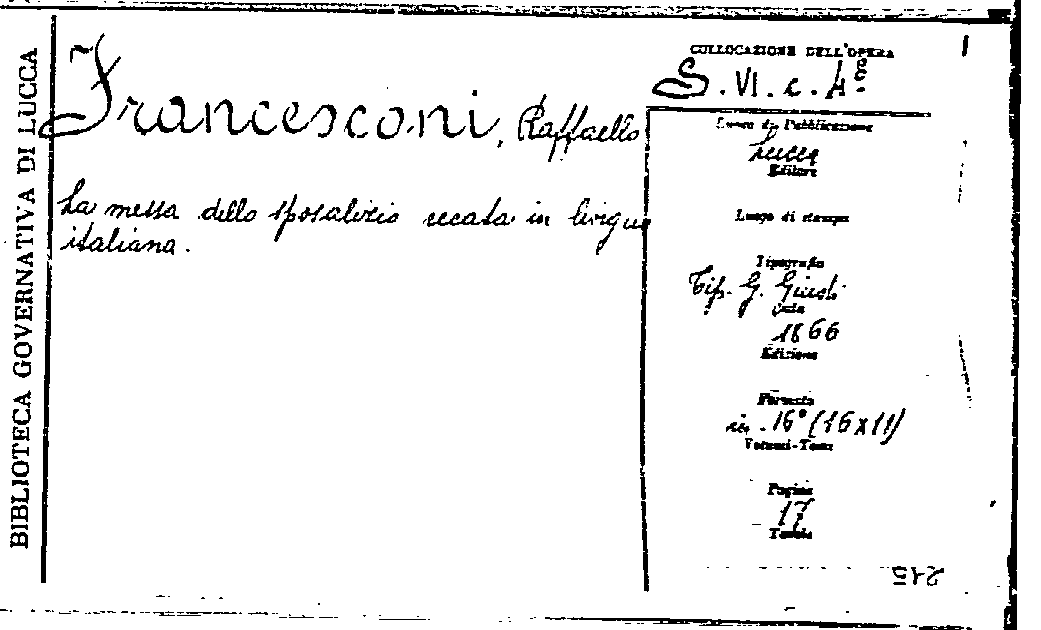 BIBLIOTECA GOVERNATIVA DI LUCCA
Francesconi, Raffaello
La messa dello sposalizio recata in lingua
italiana.
COLLOCAZIONE DELL'OPERA
S. VI. c. 48
Luogo di Pubblicazione
Lucca
Editore
Luogo di stampa
Tipografia
Tip. G. Giusti
Data
1866
Edizione
Formato
in. 16° (16x11)
Volumi-Tomi
Pagine
17
Tavole
245